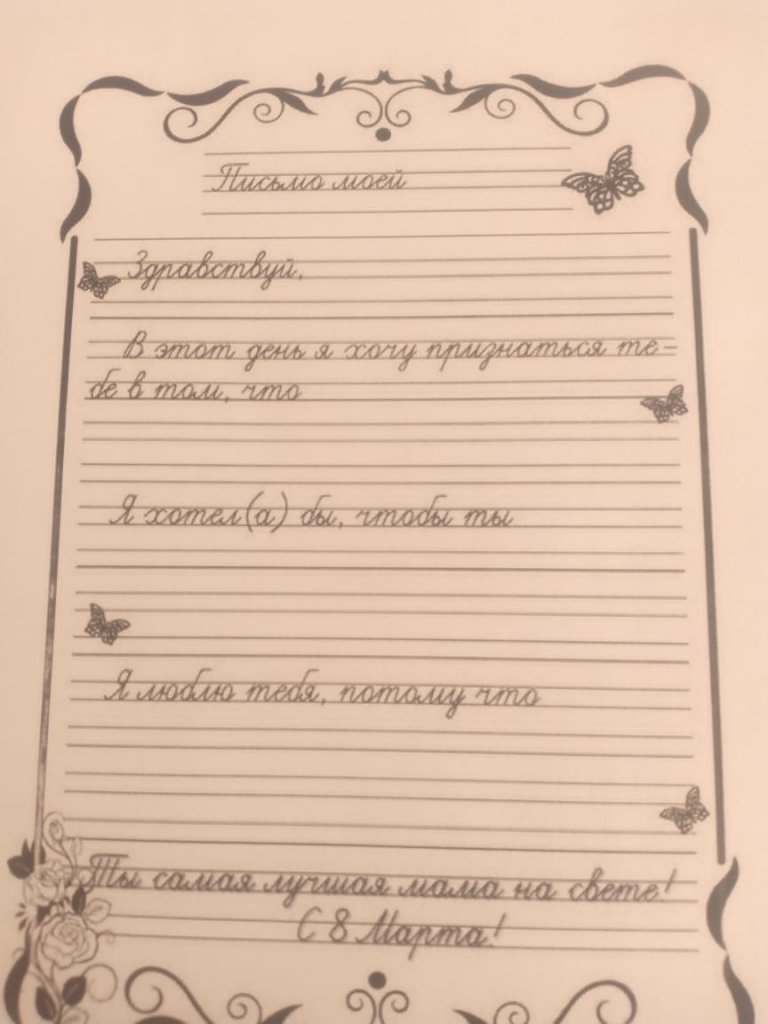 Письмо моей
Здравствуй,
В этот день я хочу признаться те-
бе в том, что
Я хотел(а) бы, чтобы ты
Я люблю тебя, потому что
Ты самая лучшая мама на свете!
С 8 Марта!